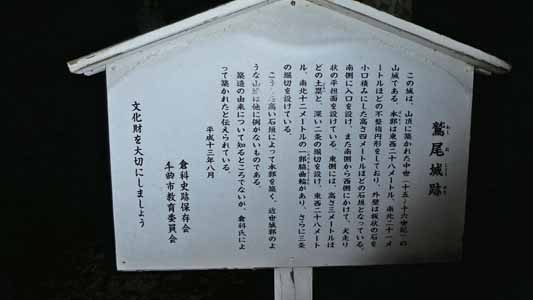 鷲尾城跡
この城は、山頂に築かれた中世(十五～十六世紀)の
山城である。本郭は東西二十八メートル、南北二十一メ
ートルほどの不整楕円形をしており、外壁は板状の石を
小口積みにした高さ四メートルほどの石垣となっている。
南側に入口を設け、また南側から西側にかけて、犬走り
状の平担面を設けている。東側には、高さ三メートルほ
どの土塁と、深い二条の堀切を設け、東西二十八メート
ル、南北十二メートルの一郭
曲輪があり、さらに三条
の堀切を設けている。
高い石垣によって本郭を築く、近世城郭のよ
うな山城は他に例がないものである。
築造の由来について知るところでないが、倉科氏によ
って築かれたと伝えられている。
平成十三年八月
倉科史跡保存会
千曲市教育委員会
文化財を大切にしましょう